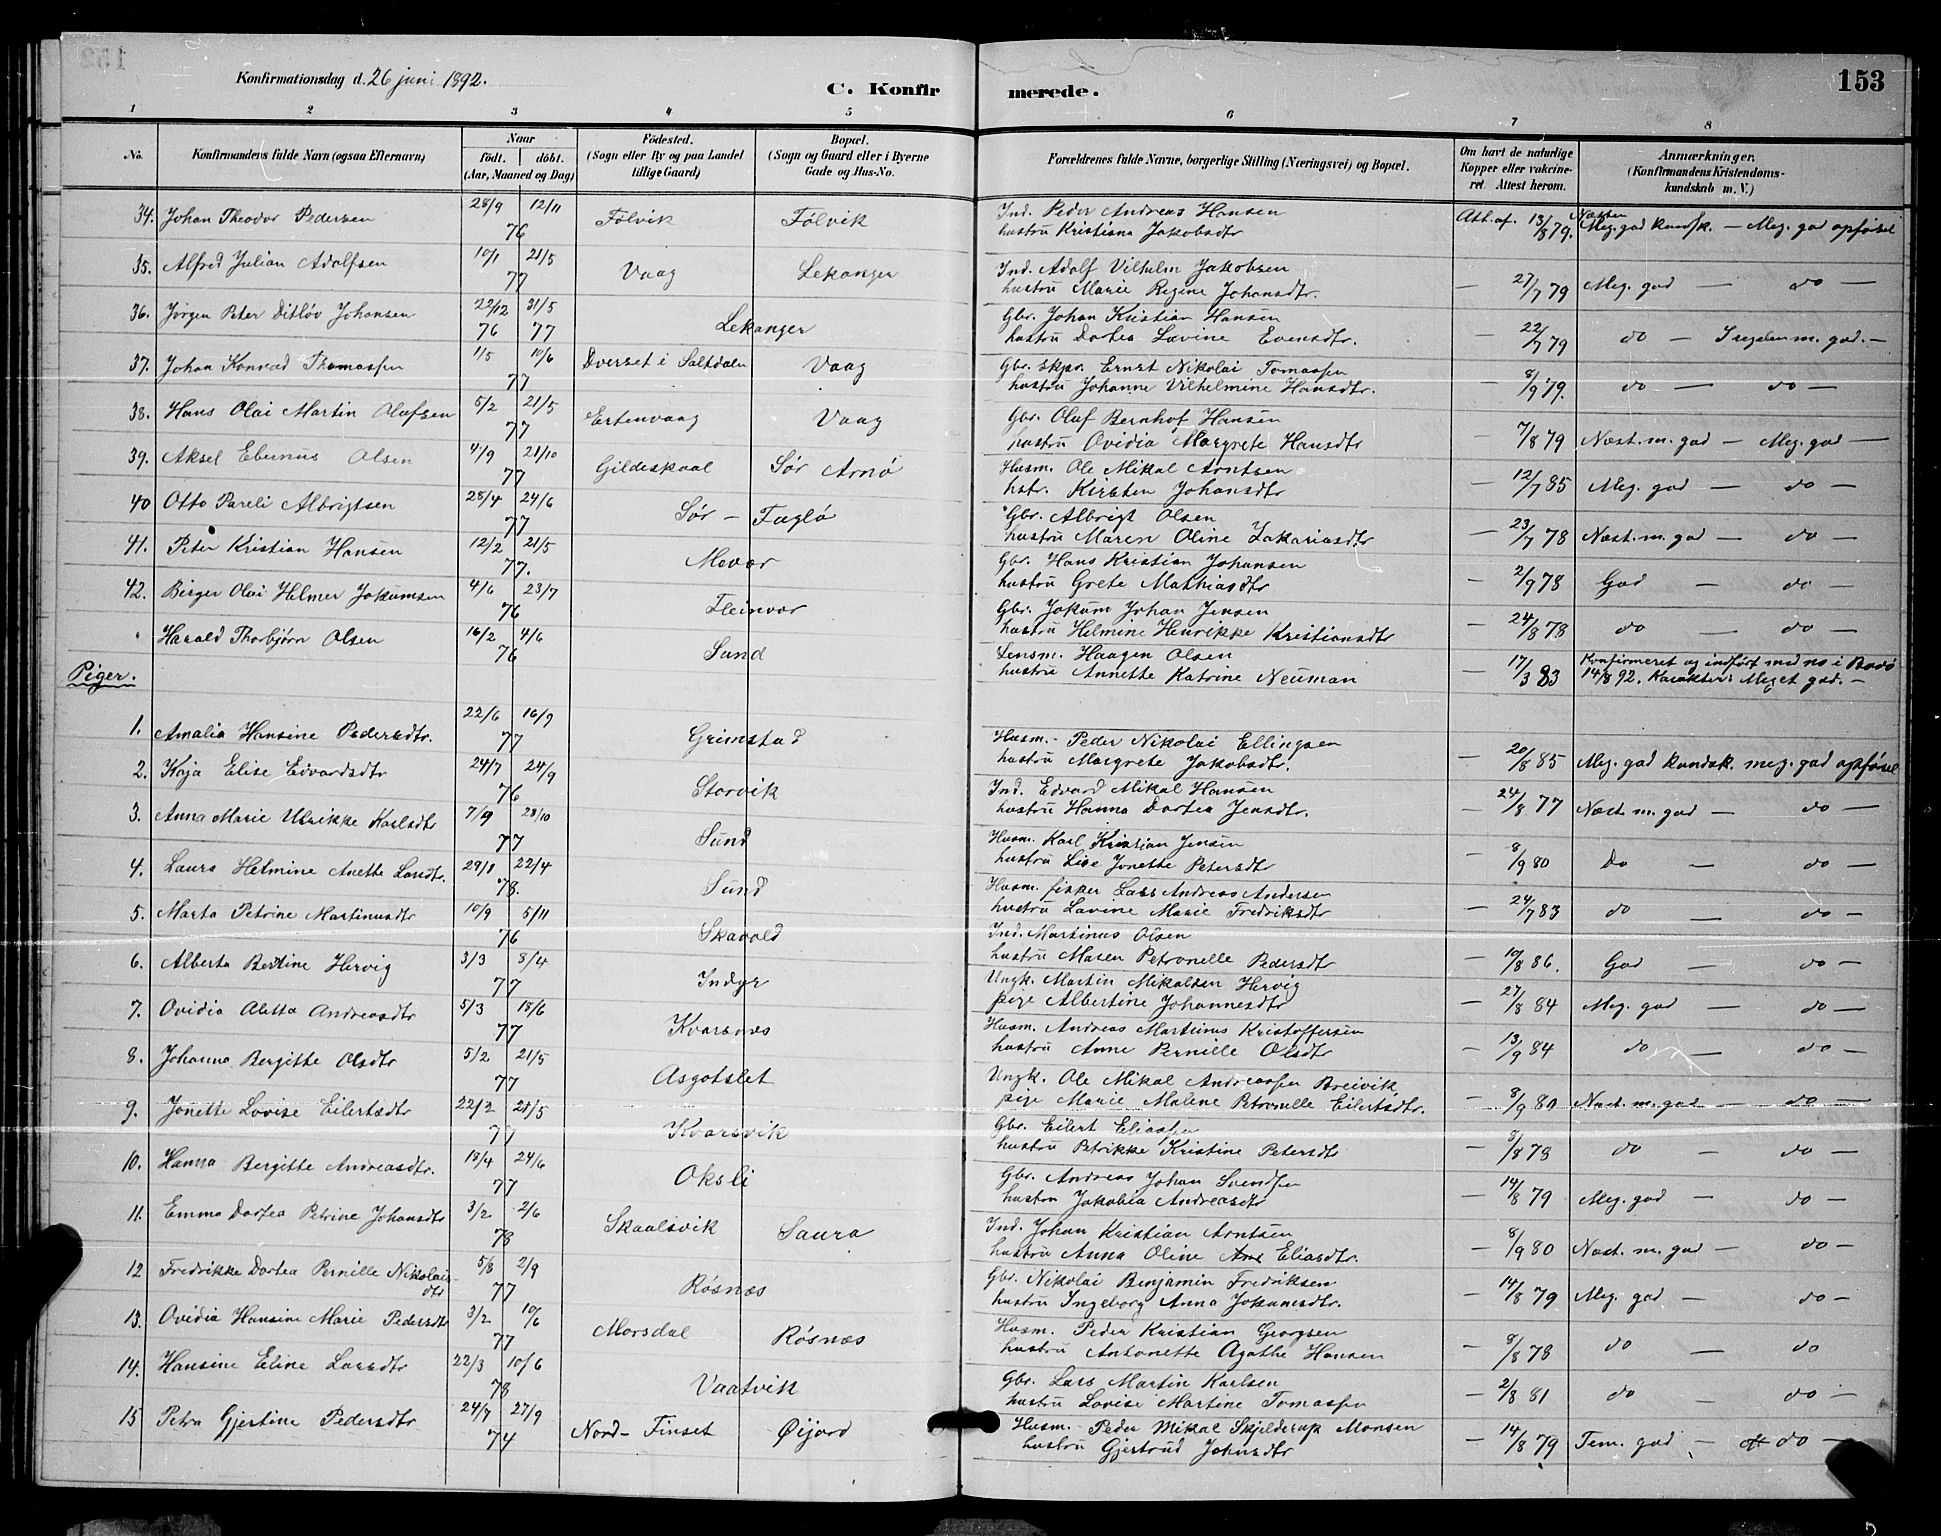 Konfirmationsdag d. 26 juni 1892.
C. Konfirmerede.
153
1 2 3 4 5 6 7 8
No.
Konfirmandens fulde Navn (ogsaa Efternavn)
Naar
födt. döbt.
(Aar, Maaned og Dag)
Födested.
(Sogn eller By og paa Landet
tillige Gaard)
Bopæl.
(Sogn og Gaard eller i Byerne
Gade og Hus-No.
Forældrenes fulde Navne, borgerlige Stilling (Næringsvei) og Bopæl.
Om havt de naturlige
Kopper eller vakcine-
ret. Attest herom.
Anmærkninger.
(Konfirmandens Kristendoms-
kundskab m. V.)
34. Johan Theodor Pedersen 28/9 12/11 76 Fölvik Fölvik Ind. Peder Andreas Hansen
hustru Kristiana Jakobsdtr Att. af. 13/8 79. Næsten Meg. god kundsk. — Meg. god opförsel
35. Alfred Julian Adolfsen 10/1 21/5 77 Vaag Lekanger Ind. Adolf Vilhelm Jakobsen
hustru Marie Regine Johansdtr. — 27/7 79 Meg. god — do —
36. Jörgen Peter Ditlöv Johansen 22/12 76 31/5 77 Lekanger Gbr. Johan Kristian Hansen
hustru Dortea Lavine Evensdtr. — 22/7 79 do — I regelen m. god. —
37. Johan Konrad Thomassen 1/5 10/6 77 Dverset i Saltdalen Vaag Gbr. skpr. Ernst Nikolai Tomassen
hustru Johanne Vilhelmine Hansdtr. — 8/9 79. do — do —
38. Hans Olai Martin Olufsen 5/2 21/5 77 Ertenvaag Vaag Gbr. Oluf Bernhof Hansen
hustru Ovidia Margrete Hansdtr — 7/8 79 Næst. m. god — Meg. god —
39. Aksel Ebernus Olsen 4/9 21/10 77 Gildeskaal Sör Arnö Husm. Ole Mikal Arntsen
hstr. Kirsten Johansdtr — 12/7 85 Meg. god — do —
40 Otto Pareli Albrigtsen 28/4 24/6 77 Sör — Fuglö Gbr. Albrigt Olsen
hustru Maren Oline Zakariasdtr — 23/7 78 Næst. m. god — do —
41. Peter Kristian Hansen 12/2 21/5 77. Mevær Gbr. Hans Kristian Johansen
hustru Grete Mathiasdtr — 2/9 78 God — do —
42. Birger Olai Helmer Jokumsen 4/6 23/7 76 Fleinvær Gbr. Jokum Johan Jensen
hustru Helmine Henrikke Kristiansdtr — 24/8 78 do — do —
" Harald Thorbjörn Olsen 16/2 4/6 76 Sund Lensm. Haagen Olsen
hustru Annette Katrine Neuman — 17/3 83 Konfirmeret og indfört med no i Bodö
14/8 92. Karakter: Meget god. —
Piger.
1. Amalia Hansine Pedersdtr. 22/6 16/9 77 Grimstad Husm. Peder Nikolai Ellingsen
hustru Margrete Jakobsdtr. — 20/8 85 Meg. god kundsk. meg. god opförsel
2. Kaja Elise Edvardsdtr 24/7 24/9 76 Storvik Ind. Edvard Mikal Hansen
hustru Hanna Dortea Jensdtr. — 24/8 77 Næst. m. god — do —
3. Anna Marie Ulrikke Karlsdtr 7/9 28/10 77 Sund Husm. Karl Kristian Jensen
hustru Lise Jonette Petersdtr — 8/9 80 Do — do —
4. Laura Helmine Anette Larsdtr. 29/1 22/4 78. Sund Husm. fisker Lars Andreas Andersen
hustru Lavine Marie Fredriksdtr — 24/7 83 do — do —
5. Marta Petrine Martinusdtr 10/9 5/11 76 Skavold Ind. Martinus Olsen
hustru Maren Petronelle Pedersdtr — 10/8 86. God — do —
6. Alberta Bertine Hervig 3/3 8/4 77 Indyr Ungk. Martin Mikalsen Hervig
pige Albertine Johannesdtr — 27/8 84 Meg. god — do —
7. Ovidia Aletta Andreasdtr 5/3 18/6 77 Kvarsnes Husm. Andreas Martinus Kristoffersen
hustru Anne Pernille Olsdtr — 13/9 84 do — do —
8. Johanna Bergitte Olsdtr 5/2 21/5 77 Asgotslet Ungk. Ole Mikal Andreassen Breivik
pige Marie Malene Petronelle Eilertsdtr. — 8/9 80 Næst. m. god — do —
9. Jonette Lovise Eilertsdtr 22/2 21/5 77 Kvarsvik Gbr. Eilert Eliassen
hustru Petrikke Kristine Petersdtr — 8/8 78 do — do —
10. Hanna Bergitte Andreasdtr. 18/4 24/6 77 Oksli Gbr. Andreas Johan Svendsen
hustru Jakobia Andreasdtr — 14/8 79 Meg. god — do —
11. Emma Dortea Petrine Johansdtr 3/2 2/6 78 Skaalsvik Saura Ind. Johan Kristian Arntsen
hustru Anna Oline Eliasdtr. — 8/9 80 Næst. m. god — do —
12 Fredrikke Dortea Pernille Nikolais-
dtr 5/8 2/9 77 Rösnæs Gbr. Nikolai Benjamin Fredriksen
hustru Ingeborg Anna Jokumsdtr. — 14/8 79 Meg. god — do —
13. Ovidia Hansine Marie Pedersdtr 3/2 10/6 77 Morsdal Rösnæs Husm. Peder Kristian Georgsen
hustru Antonette Agathe Hansen — 8/8 78 do — do
14. Hansine Eline Larsdtr 22/3 10/6 78 Vaatvik Gbr. Lars Martin Karlsen
hustru Lovise Martine Tomassen — 2/8 81 do — do —
15 Petra Gjertine Pedersdtr 24/7 27/9 74 Nord-Finset Öijord Husm. Peder Mikal Skjelderup Monsen
hustru Gjertrud Johnsdtr — 14/8 79 Tem. god — do —